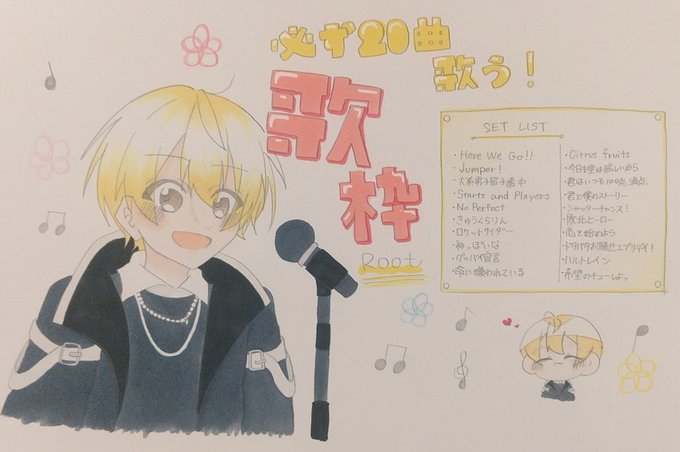 必ず20曲
歌う！
歌
枠
Root
SET LIST
・Here We Go!!
・Jumper!
・Starts and Players
・No Perfect
・きゅうくらりん
・ロケットサイダー
・神っぽいな
・グッバイ宣言
・命に嫌われている
・Citrus fruits
・今日も空は眩しいから
・君はいつも100点満点
・君と僕のストーリー
・シャッターチャンス！
・敗北ヒーロー
・恋を始めよう
・ドタバタお騒がせエブリデイ！
・ハルトレイン